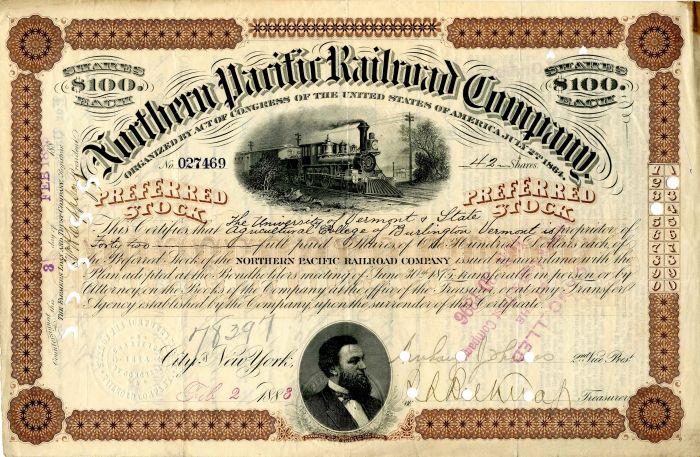 SHARES
$100.
EACH
SHARES
$100.
EACH
Northern Pacific Railroad Company
ORGANIZED BY ACT OF CONGRESS OF THE UNITED STATES OF AMERICA, JULY 2ND 1864.
No 027469
42 Shares.
PREFERRED
STOCK
PREFERRED
STOCK
This Certifies that The University of Vermont & State
Agricultural College of Burlington Vermont is proprietor of
Forty two full paid Shares of One Hundred Dollars each, of
the Preferred Stock of the NORTHERN PACIFIC RAILROAD COMPANY issued in accordance with the
Plan adopted at the Bondholders meeting of June 30th 1875 transferable in person or by
Attorney, on the Books of the Company at the office of the Treasurer or at any Transfer
Agency established by the Company, upon the surrender of this Certificate.
78397
City of New York,
Feb 2 1883
2nd Vice Prest.
Treasurer
Countersigned this 3 day of FEB 188
THE FARMERS' LOAN AND TRUST COMPANY, Registrar
1
2
3
4
5
6
7
8
9
0